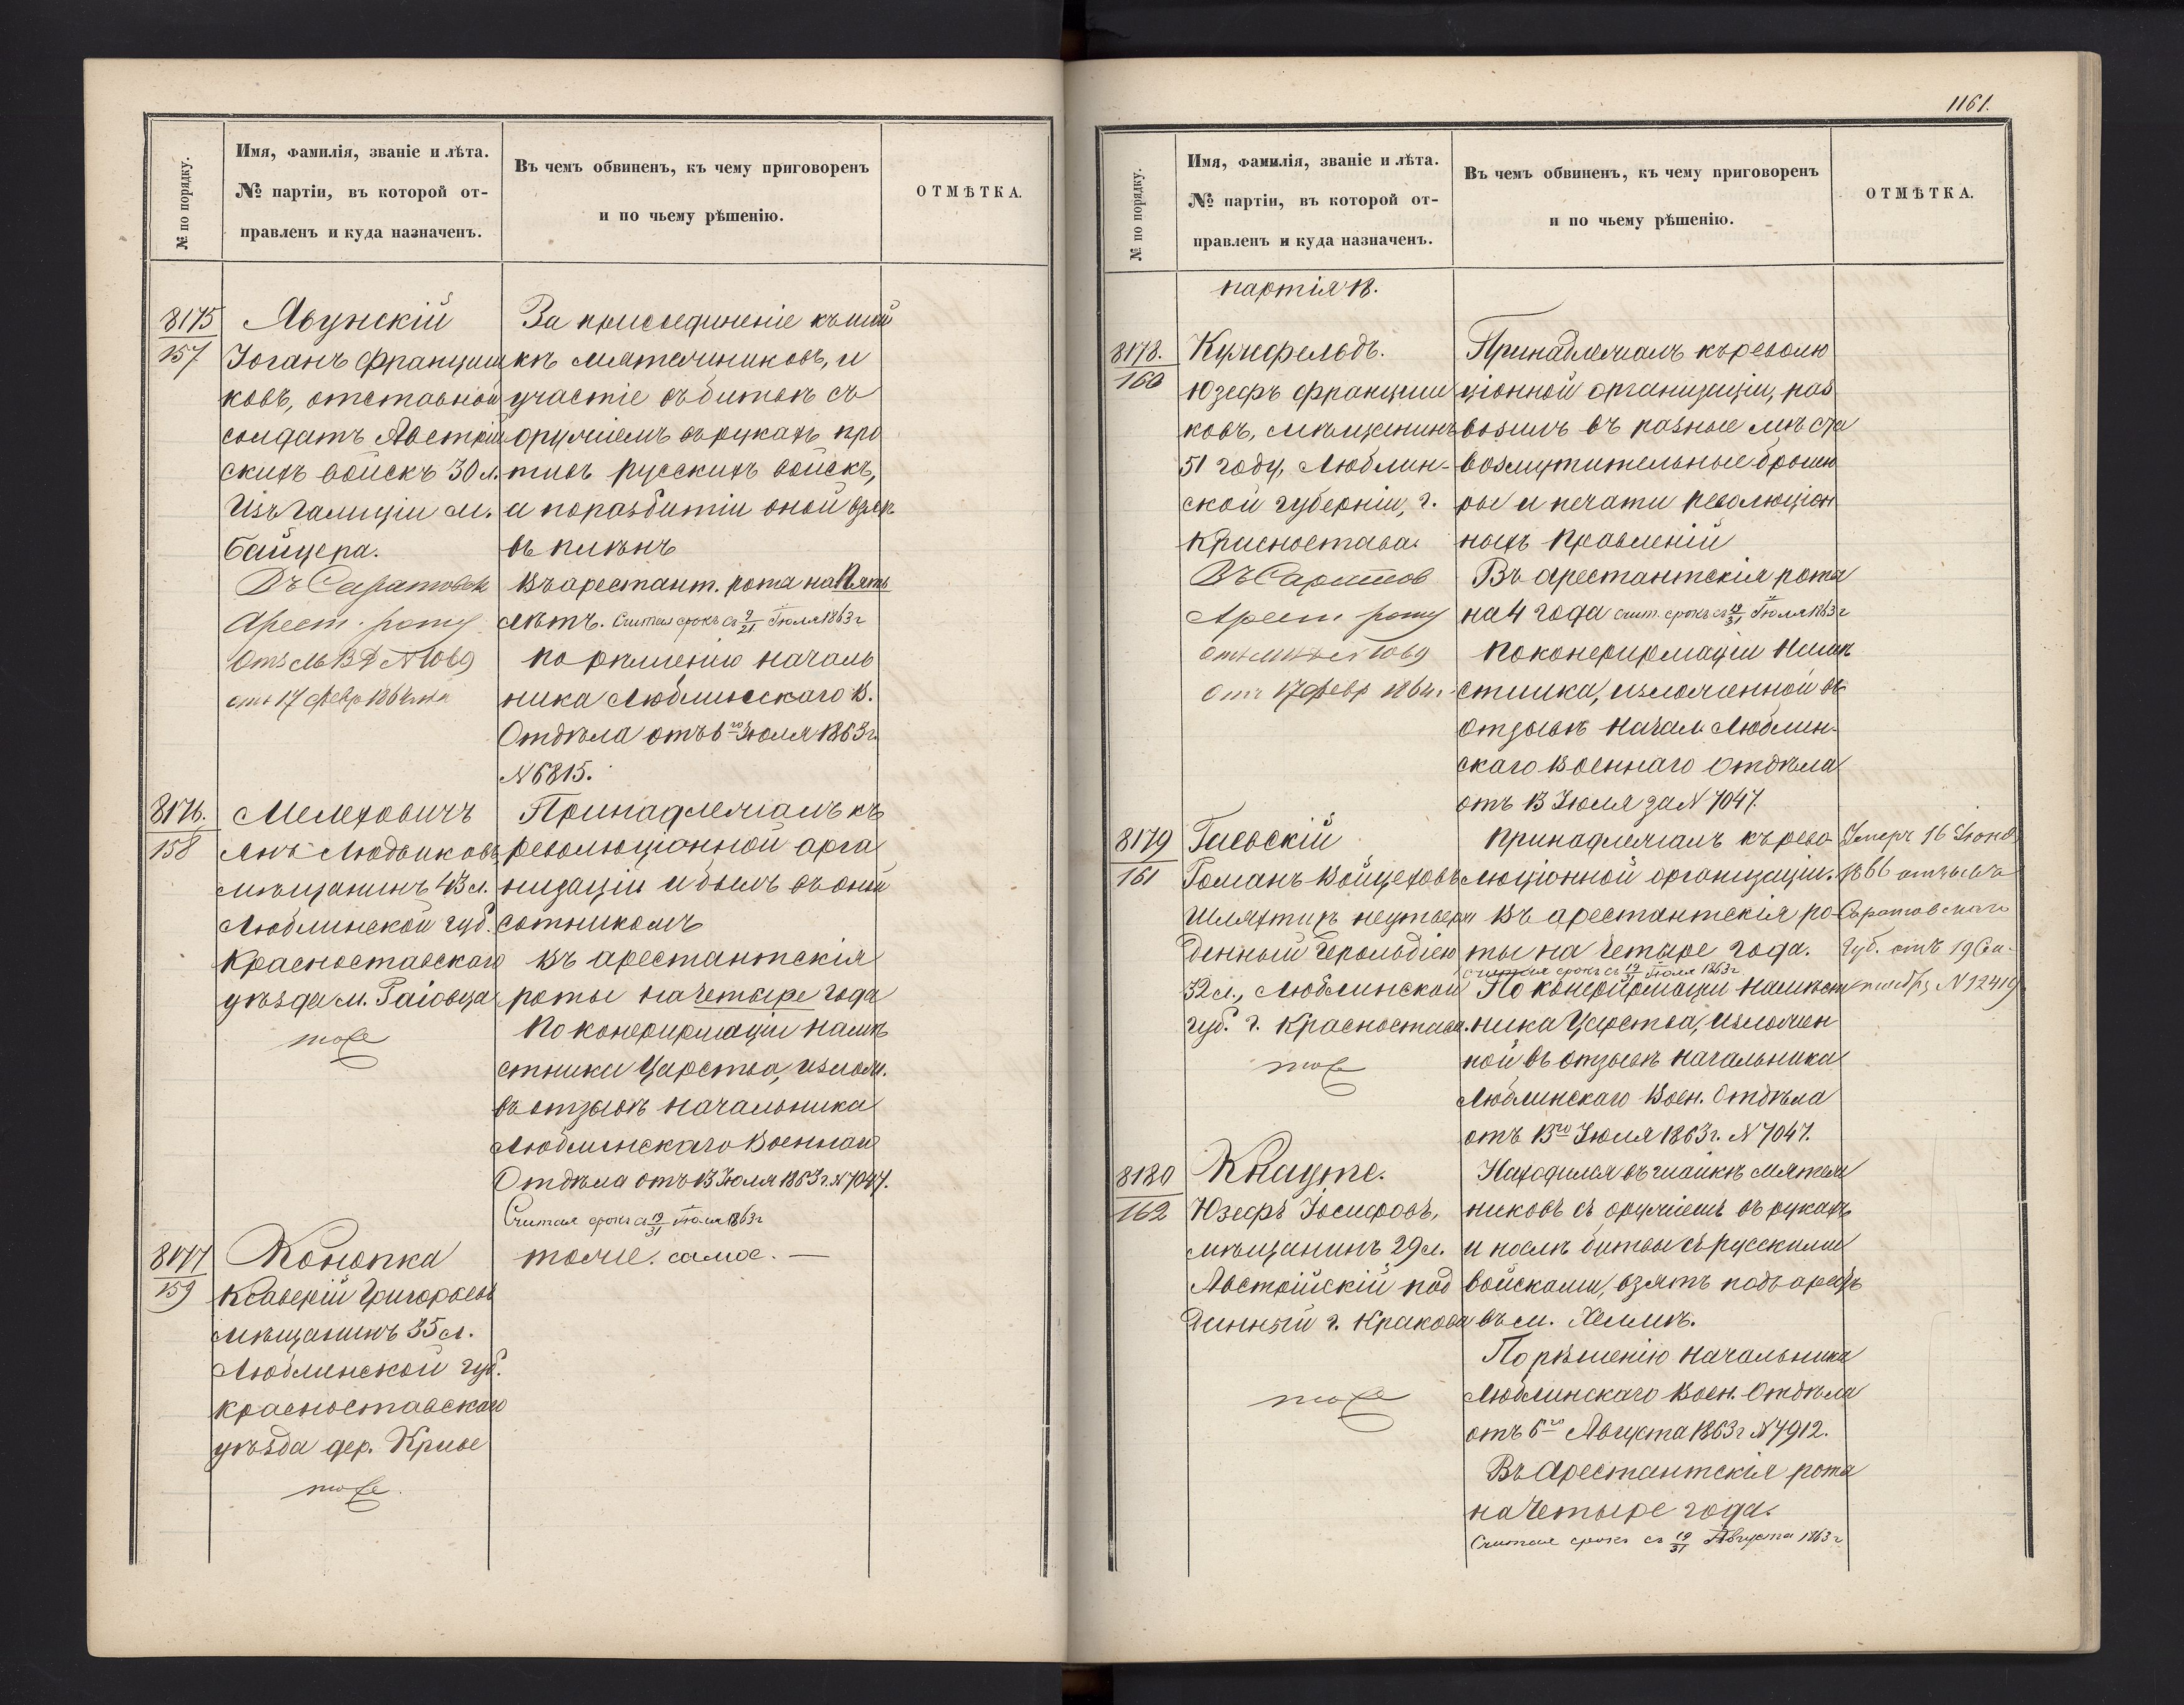 № по порядку.
Имя, фамилія, званіе и лѣта.
№ партіи, въ которой от-
правленъ и куда назначенъ.
Въ чемъ обвиненъ, къ чему приговоренъ
и по чьему рѣшенію.
ОТМѢТКА.
8175
157
Явунскій
Іоганъ Франциш
ковъ, отставной
солдатъ Австрій
скихъ войскъ 30 л.
Изъ Галиціи м.
Байцера.
Въ Саратовск
Арест. роту
От М В Д № 1069
отъ 17 февр 1864 г.
За присоединеніе къ шай
кѣ мятежниковъ, и
участіе въ битвѣ съ
оружіемъ въ рукахъ про
тивъ русскихъ войскъ,
а по разбитіи оной взятъ
въ плѣнъ
Въ арестант. рота на пять
лѣтъ. Считая срокъ съ 9/21 Іюля 1863 г
По рѣшенію началь
ника Люблинскаго В.
Отдѣла отъ 6го Іюля 1863 г.
№ 6815.
8176.
158
Мелеховичъ
Янъ Людвиковъ,
мѣщанинъ 43 л.
Люблинской губ.
Красноставскаго
уѣзда м. Раіовца
тоже
Принадлежалъ къ
революціонной орга
низаціи и былъ въ оной
сотникомъ
Въ арестантскія
роты на четыре года
По конфирмаціи намѣ
стника Царства, излож.
въ отзывѣ начальника
Люблинскаго Военнаго
Отдѣла отъ 13 Іюля 1863 г. № 7047.
Считая срокъ съ 19/31 Іюля 1863 г
8177
159
Конопка
Ксаверій Григорьевъ
мѣщанинъ 35 л.
Люблинской губ.
Красноставскаго
уѣзда дер. Кривое
тоже.
тоже. самое. —
1161.
№ по порядку.
Имя, фамилія, званіе и лѣта.
№ партіи, въ которой от-
правленъ и куда назначенъ.
Въ чемъ обвиненъ, къ чему приговоренъ
и по чьему рѣшенію.
ОТМѢТКА.
партія 18.
8178.
160
Кульфельдъ.
Юзефъ Францишк
ковъ, мѣщанинъ
51 году, Люблин-
ской губерніи, г.
Красностава.
Въ Саратов
Арест роту
от М В Д № 1069
От 17 февр 1864 г.
Принадлежалъ къ револю
ціонной организаціи, раз
возилъ въ разные мѣста
возмутительные брошю
ры и печати революціон
ныхъ правленій
Въ арестантскія рота
на 4 года счит. срокъ съ 19/31 Іюля 1863 г
По конфирмаціи Намѣ
стника, изложенной въ
отзывѣ начал. Люблин-
скаго Военнаго Отдѣла
отъ 13 Іюля за № 7047.
8179
161
Гаевскій
Романъ Войцеховъ
шляхтичъ неутверж
денный Герольдіею
32 л., Люблинской
губ. г. Красностава.
тоже
Принадлежалъ къ рево-
люціонной организаціи.
Въ арестантскія ро-
ты на четыре года.
считая срокъ съ 19/31 Іюля 1863 г
По конфирмаціи намѣст
ника Царства, изложен
ной въ отзывѣ начальника
Люблинскаго Воен. Отдѣла
отъ 13го Іюля 1863 г. № 7047.
Умеръ 16 Іюня
1866 отзывъ
Саратовскаго
Губ. отъ 19 Сен-
тября № 12419
8180
162
Кнауте.
Юзефъ Іосифовъ,
мѣщанинъ 29 л.
Австрійскій под
данный г. Кракова
тоже
Находился въ шайкѣ мятеж
никовъ съ оружіемъ въ рукахъ
и послѣ битвы съ русскими
войсками, взятъ подъ арестъ
въ м. Хелмѣ.
По рѣшенію начальника
Люблинскаго Воен. Отдѣла
отъ 6го Августа 1863 г № 7912.
Въ арестантскія рота
на четыре года.
Считая срокъ съ 19/31 Августа 1863 г